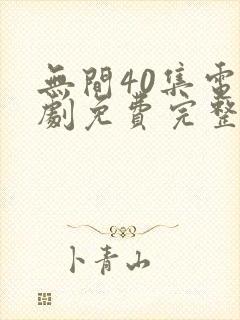 無間40集電
劇免費完整
卜青山